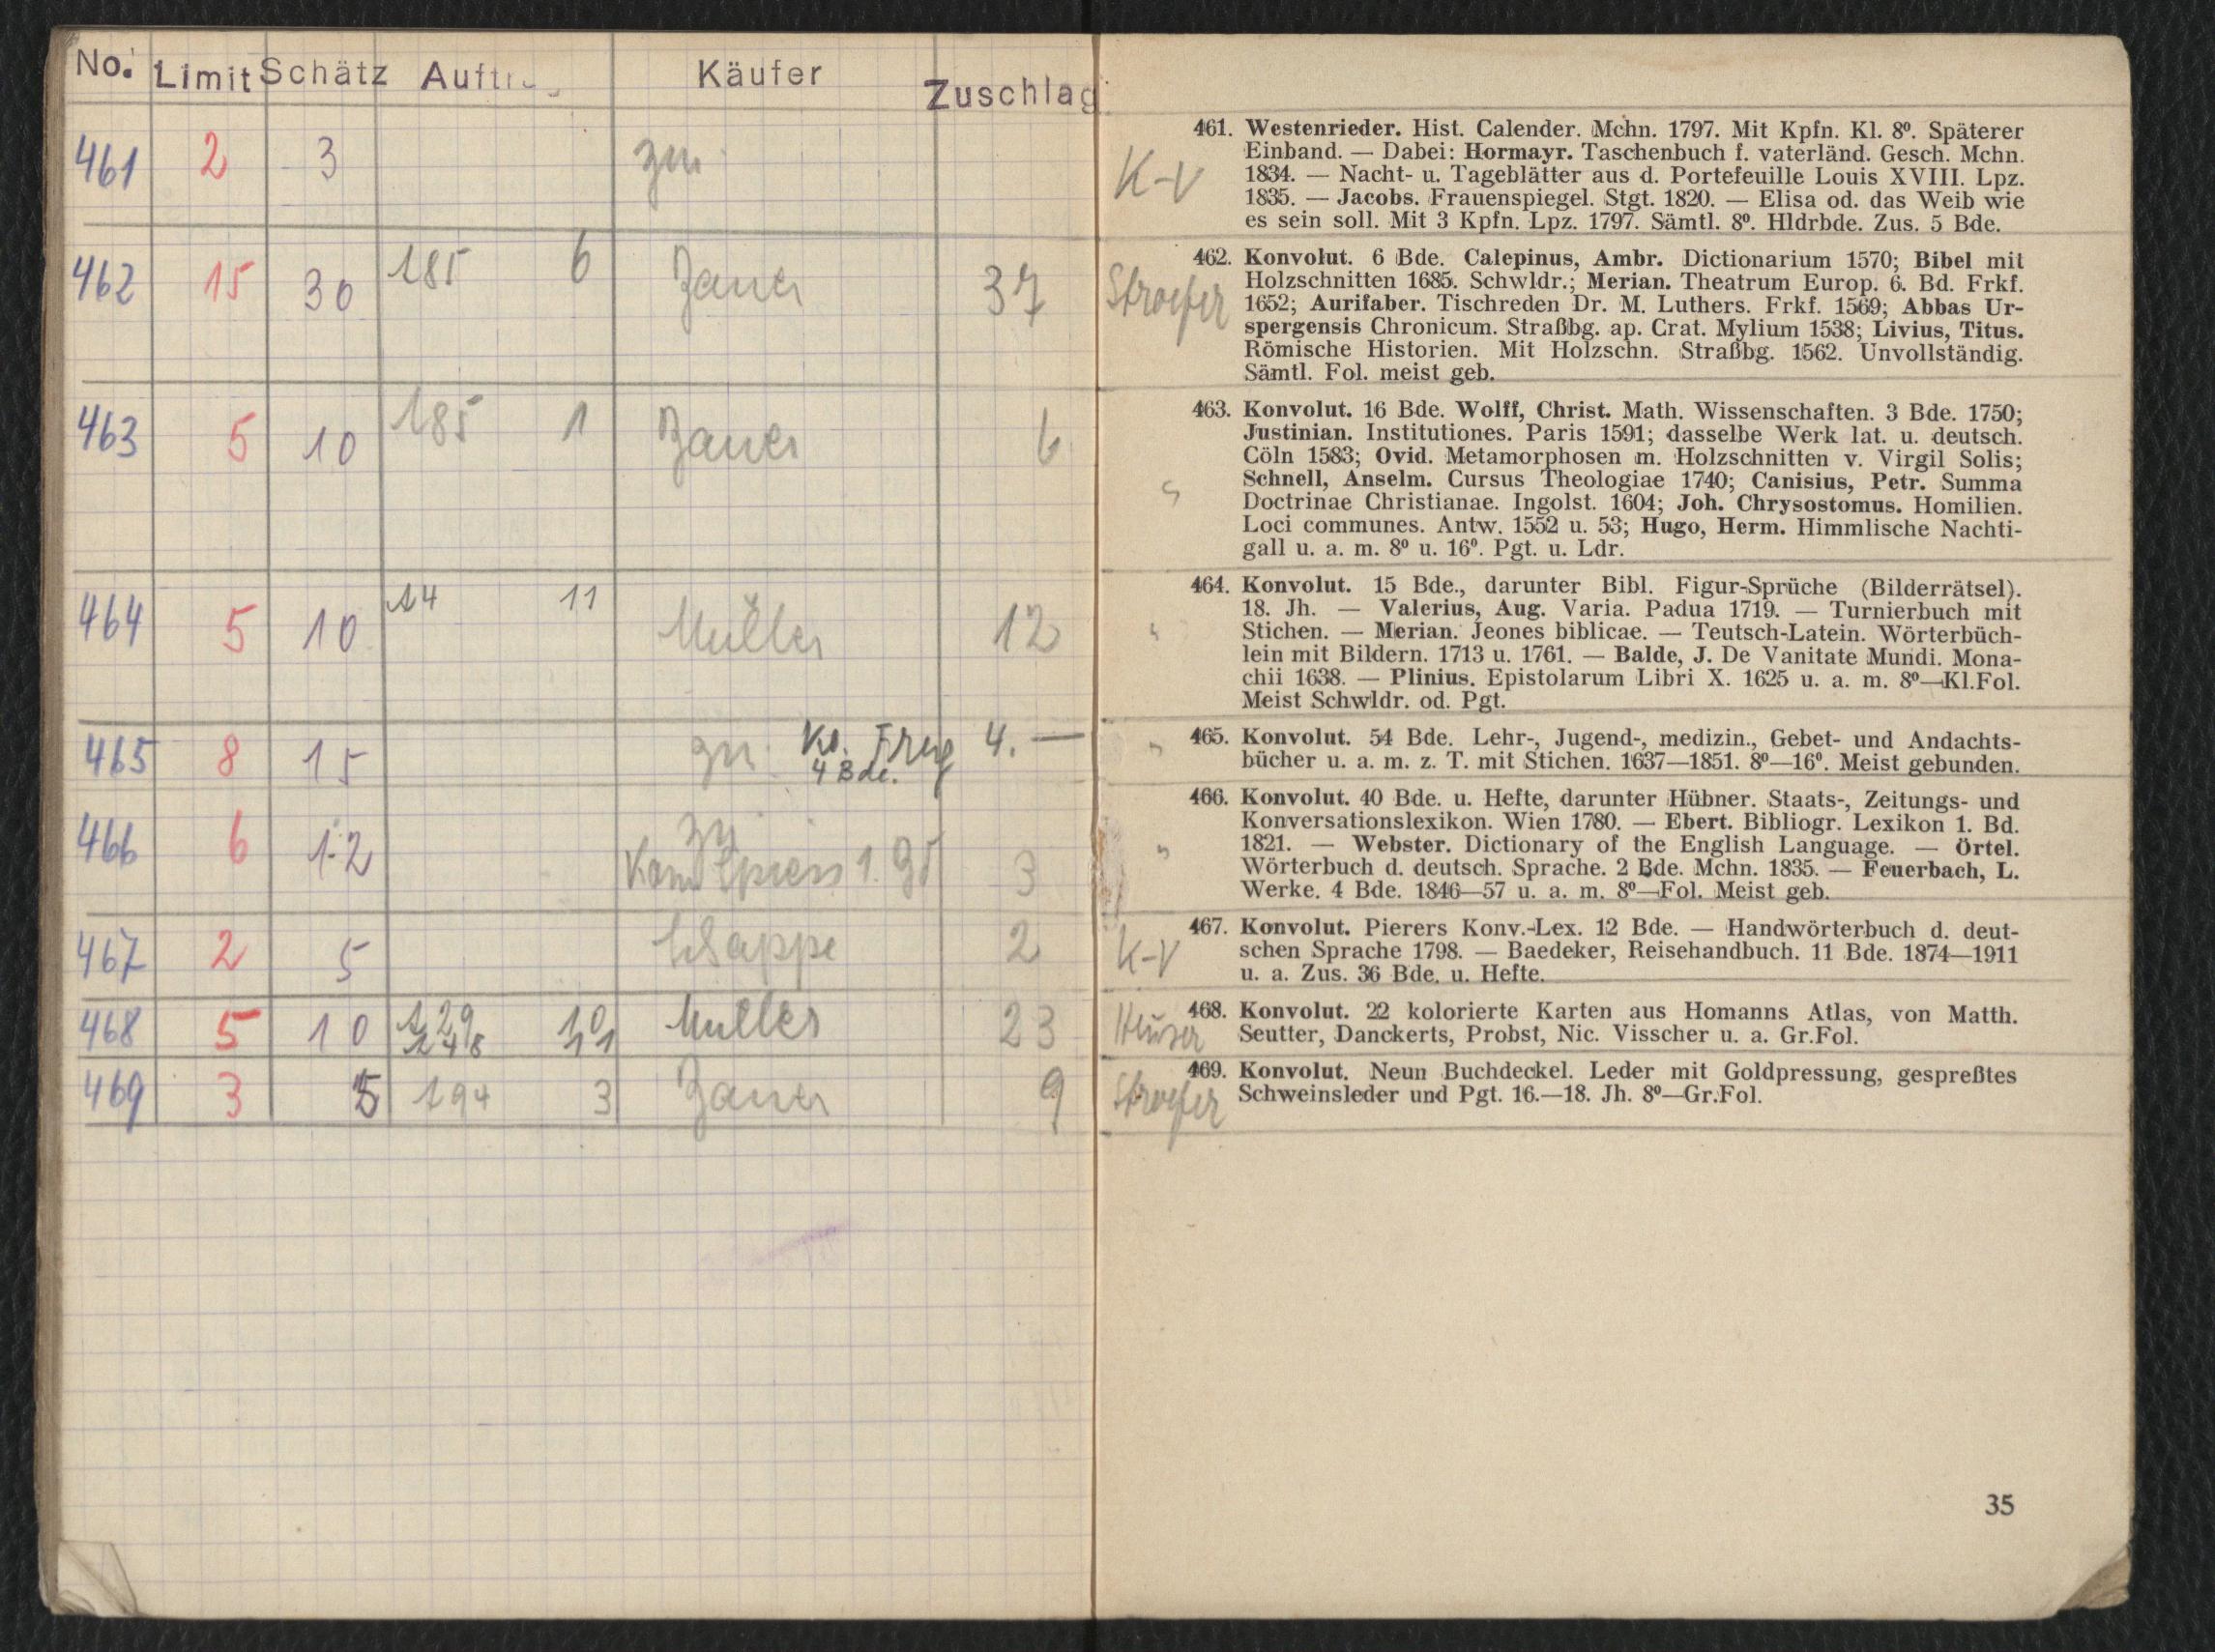 No. Limit Schätz Käufer Zuschlag
461 2 3 zu.
462 15 30 185 6 37
463 5 10 185 1 6
464 5 10 14 11 Müller 12
465 8 15 zu. 4.—
4 Bde.
466 6 12 zu 3
467 2 5 2
468 5 10 129 10 Müller 23
148 11
469 3 5 194 3 9
K-V
461. Westenrieder. Hist. Calender. Mchn. 1797. Mit Kpfn. Kl. 8⁰. Späterer
Einband. — Dabei: Hormayr. Taschenbuch f. vaterländ. Gesch. Mchn.
1834. — Nacht- u. Tageblätter aus d. Portefeuille Louis XVIII. Lpz.
1835. — Jacobs. Frauenspiegel. Stgt. 1820. — Elisa od. das Weib wie
es sein soll. Mit 3 Kpfn. Lpz. 1797. Sämtl. 8⁰. Hldrbde. Zus. 5 Bde.
Stroefer
462. Konvolut. 6 Bde. Calepinus, Ambr. Dictionarium 1570; Bibel mit
Holzschnitten 1685. Schwldr.; Merian. Theatrum Europ. 6. Bd. Frkf.
1652; Aurifaber. Tischreden Dr. M. Luthers. Frkf. 1569; Abbas Ur-
spergensis Chronicum. Straßbg. ap. Crat. Mylium 1538; Livius, Titus.
Römische Historien. Mit Holzschn. Straßbg. 1562. Unvollständig.
Sämtl. Fol. meist geb.
463. Konvolut. 16 Bde. Wolff, Christ. Math. Wissenschaften. 3 Bde. 1750;
Justinian. Institutiones. Paris 1591; dasselbe Werk lat. u. deutsch.
Cöln 1583; Ovid. Metamorphosen m. Holzschnitten v. Virgil Solis;
Schnell, Anselm. Cursus Theologiae 1740; Canisius, Petr. Summa
Doctrinae Christianae. Ingolst. 1604; Joh. Chrysostomus. Homilien.
Loci communes. Antw. 1552 u. 53; Hugo, Herm. Himmlische Nachti-
gall u. a. m. 8⁰ u. 16⁰. Pgt. u. Ldr.
464. Konvolut. 15 Bde., darunter Bibl. Figur-Sprüche (Bilderrätsel).
18. Jh. — Valerius, Aug. Varia. Padua 1719. — Turnierbuch mit
Stichen. — Merian. Jeones biblicae. — Teutsch-Latein. Wörterbüch-
lein mit Bildern. 1713 u. 1761. — Balde, J. De Vanitate Mundi. Mona-
chii 1638. — Plinius. Epistolarum Libri X. 1625 u. a. m. 8⁰—Kl.Fol.
Meist Schwldr. od. Pgt.
465. Konvolut. 54 Bde. Lehr-, Jugend-, medizin., Gebet- und Andachts-
bücher u. a. m. z. T. mit Stichen. 1637—1851. 8⁰—16⁰. Meist gebunden.
466. Konvolut. 40 Bde. u. Hefte, darunter Hübner. Staats-, Zeitungs- und
Konversationslexikon. Wien 1780. — Ebert. Bibliogr. Lexikon 1. Bd.
1821. — Webster. Dictionary of the English Language. — Örtel.
Wörterbuch d. deutsch. Sprache. 2 Bde. Mchn. 1835. — Feuerbach, L.
Werke. 4 Bde. 1846—57 u. a. m. 8⁰—Fol. Meist geb.
K-V
467. Konvolut. Pierers Konv.-Lex. 12 Bde. — Handwörterbuch d. deut-
schen Sprache 1798. — Baedeker, Reisehandbuch. 11 Bde. 1874—1911
u. a. Zus. 36 Bde. u. Hefte.
468. Konvolut. 22 kolorierte Karten aus Homanns Atlas, von Matth.
Seutter, Danckerts, Probst, Nic. Visscher u. a. Gr.Fol.
Stroefer
469. Konvolut. Neun Buchdeckel. Leder mit Goldpressung, gespreßtes
Schweinsleder und Pgt. 16.—18. Jh. 8⁰—Gr.Fol.
35